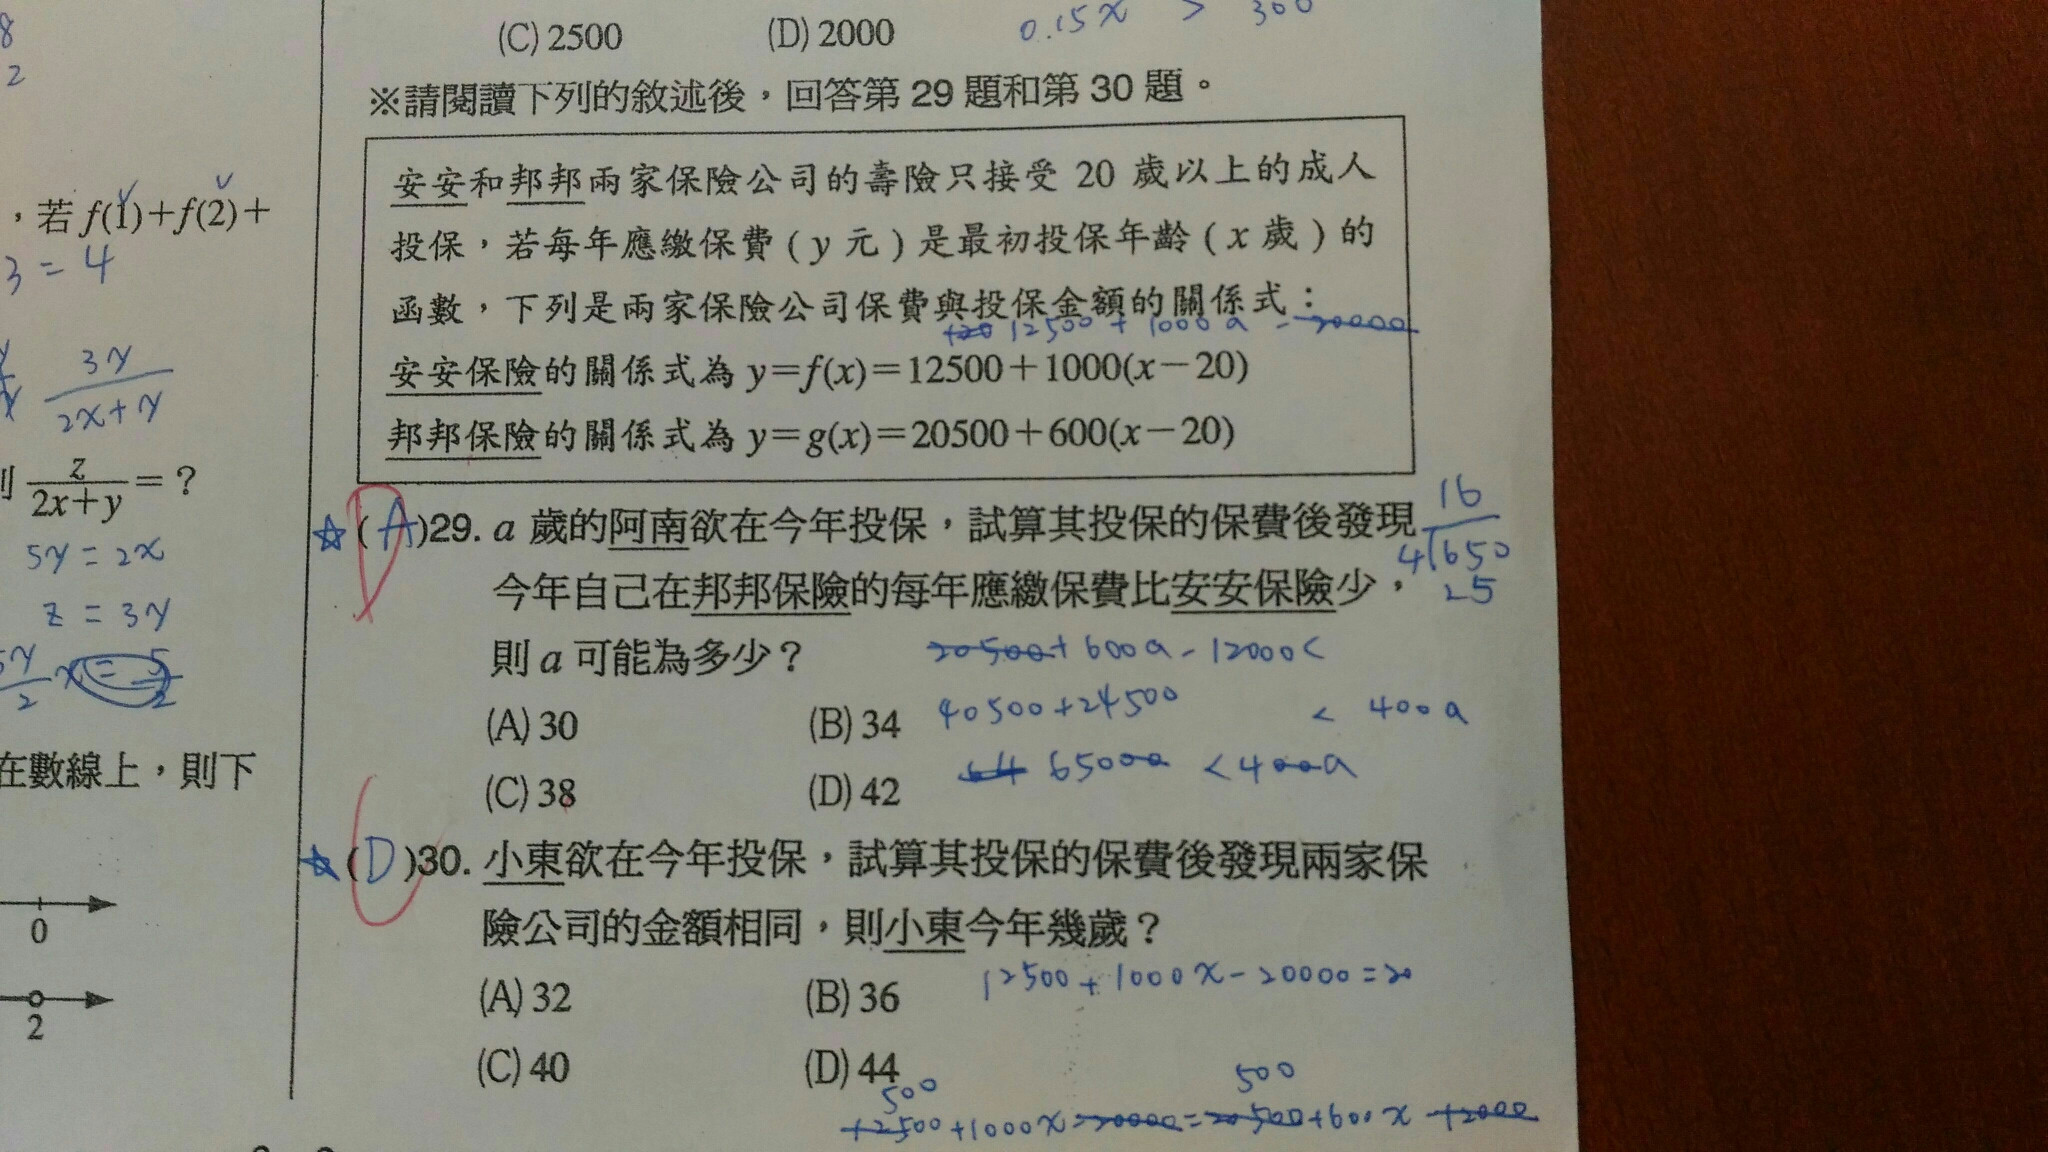 8
2
，若 f(1)+f(2)+
3 = 4
3y
2x+y
z
2x+y
=？
5y = 2x
z = 3y
在數線上，則下
0
2
(C) 2500 (D) 2000
0.15x > 300
※請閱讀下列的敘述後，回答第 29 題和第 30 題。
安安和邦邦兩家保險公司的壽險只接受 20 歲以上的成人
投保，若每年應繳保費 ( y 元 ) 是最初投保年齡 ( x 歲 ) 的
函數，下列是兩家保險公司保費與投保金額的關係式：
12500 + 1000a - 20000
安安保險的關係式為 y=f(x)=12500+1000(x－20)
邦邦保險的關係式為 y=g(x)=20500+600(x－20)
☆(A)29. a 歲的阿南欲在今年投保，試算其投保的保費後發現
D
今年自己在邦邦保險的每年應繳保費比安安保險少，
則 a 可能為多少？
16
4 650
25
20500+600a-12000<
(A) 30 (B) 34
40500+24500 < 400a
(C) 38 (D) 42
65000 <400a
☆(D)30. 小東欲在今年投保，試算其投保的保費後發現兩家保
險公司的金額相同，則小東今年幾歲？
12500+1000x-20000=20
(A) 32 (B) 36
(C) 40 (D) 44
500 500
12500+1000x-20000=20500+600x-12000